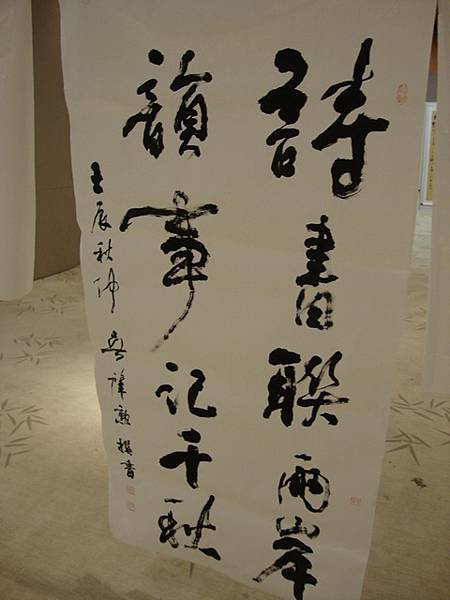 詩書聯兩岸
韻事記千秋
壬辰秋仲 吳 勳 撰書